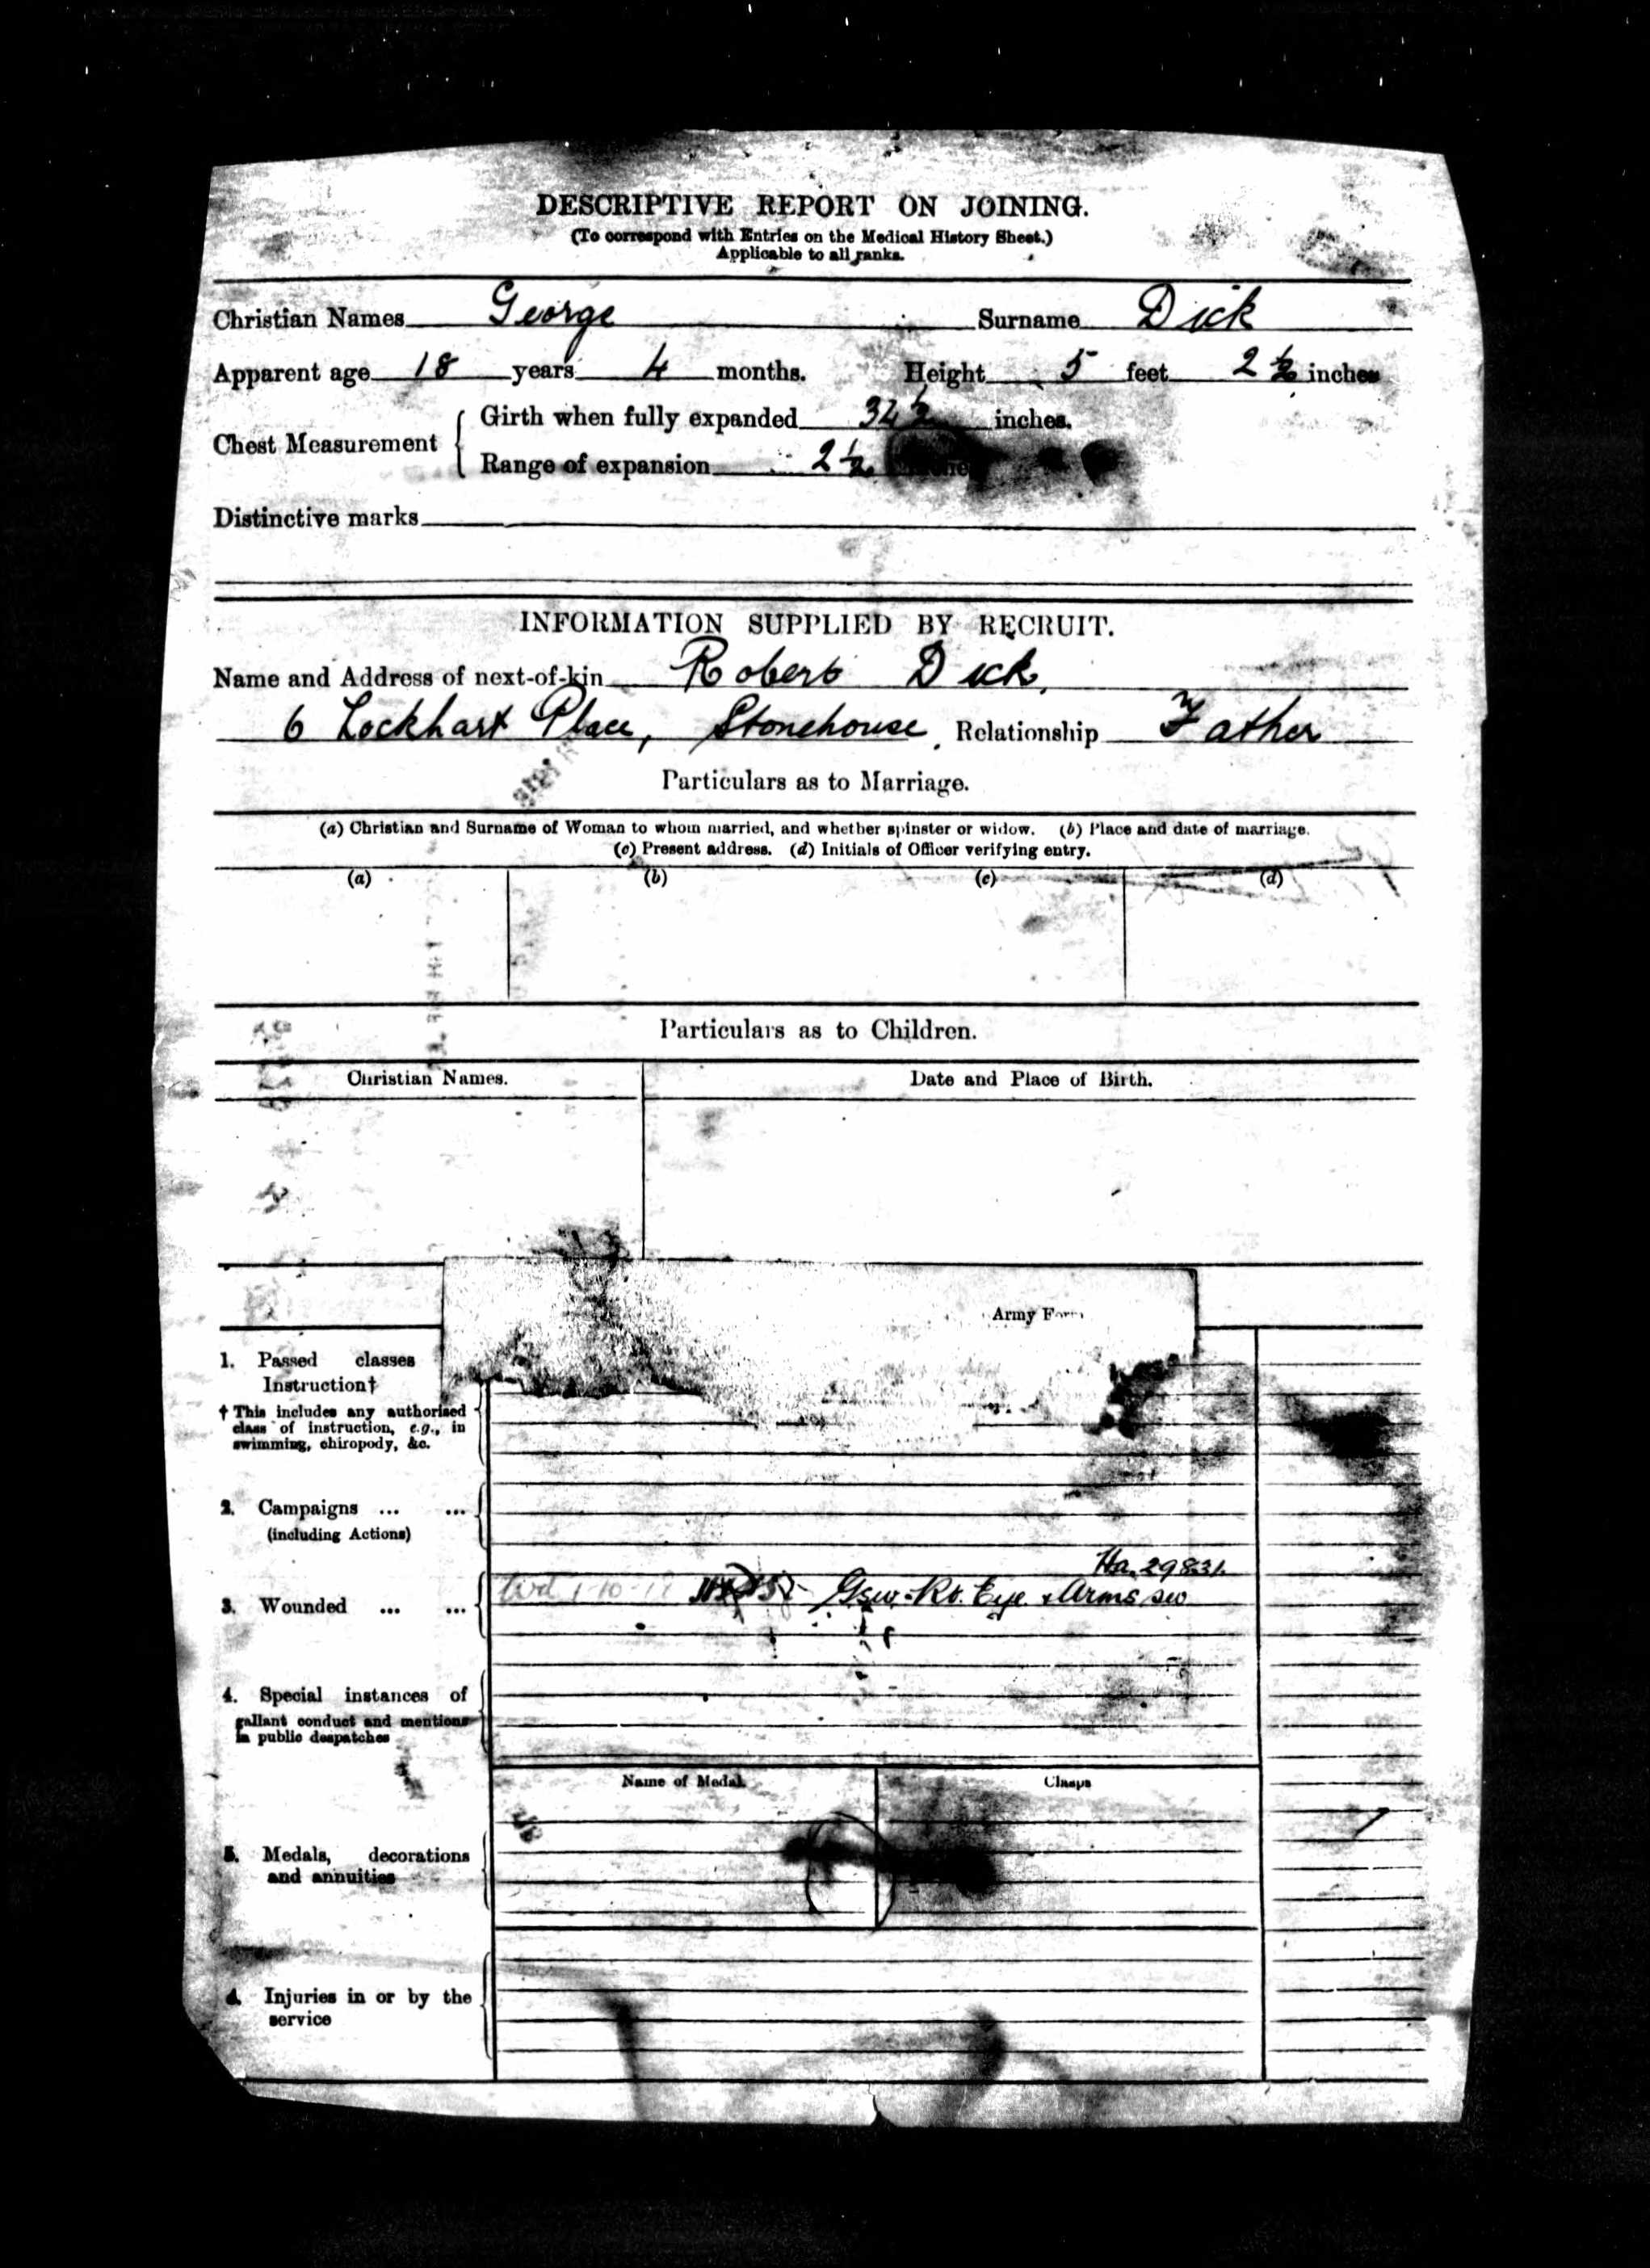 DESCRIPTIVE REPORT ON JOINING.
(To correspond with Entries on the Medical History Sheet.)
Applicable to all ranks.
Christian Names George Surname Dick
Apparent age 18 years 4 months. Height 5 feet 2 ½ inches
Chest Measurement { Girth when fully expanded 32 ½ inches.
Range of expansion 2 ½
Distinctive marks
INFORMATION SUPPLIED BY RECRUIT.
Name and Address of next-of-kin Robert Dick,
6 Lockhart Place, Stonehouse, Relationship Father
Particulars as to Marriage.
(a) Christian and Surname of Woman to whom married, and whether spinster or widow. (b) Place and date of marriage.
(c) Present address. (d) Initials of Officer verifying entry.
(a) (b) (c) (d)
Particulars as to Children.
Christian Names. Date and Place of Birth.
Army Form
1. Passed classes
Instruction†
† This includes any authorised
class of instruction, e.g., in
swimming, chiropody, &c.
2. Campaigns ... ...
(including Actions)
Ha. 29831.
3. Wounded ... ... Wd 1-10-18 Gsw. Rt. Eye & Arms sev
4. Special instances of
gallant conduct and mentions
in public despatches
Name of Medal. Clasps
5. Medals, decorations
and annuities
Injuries in or by the
service